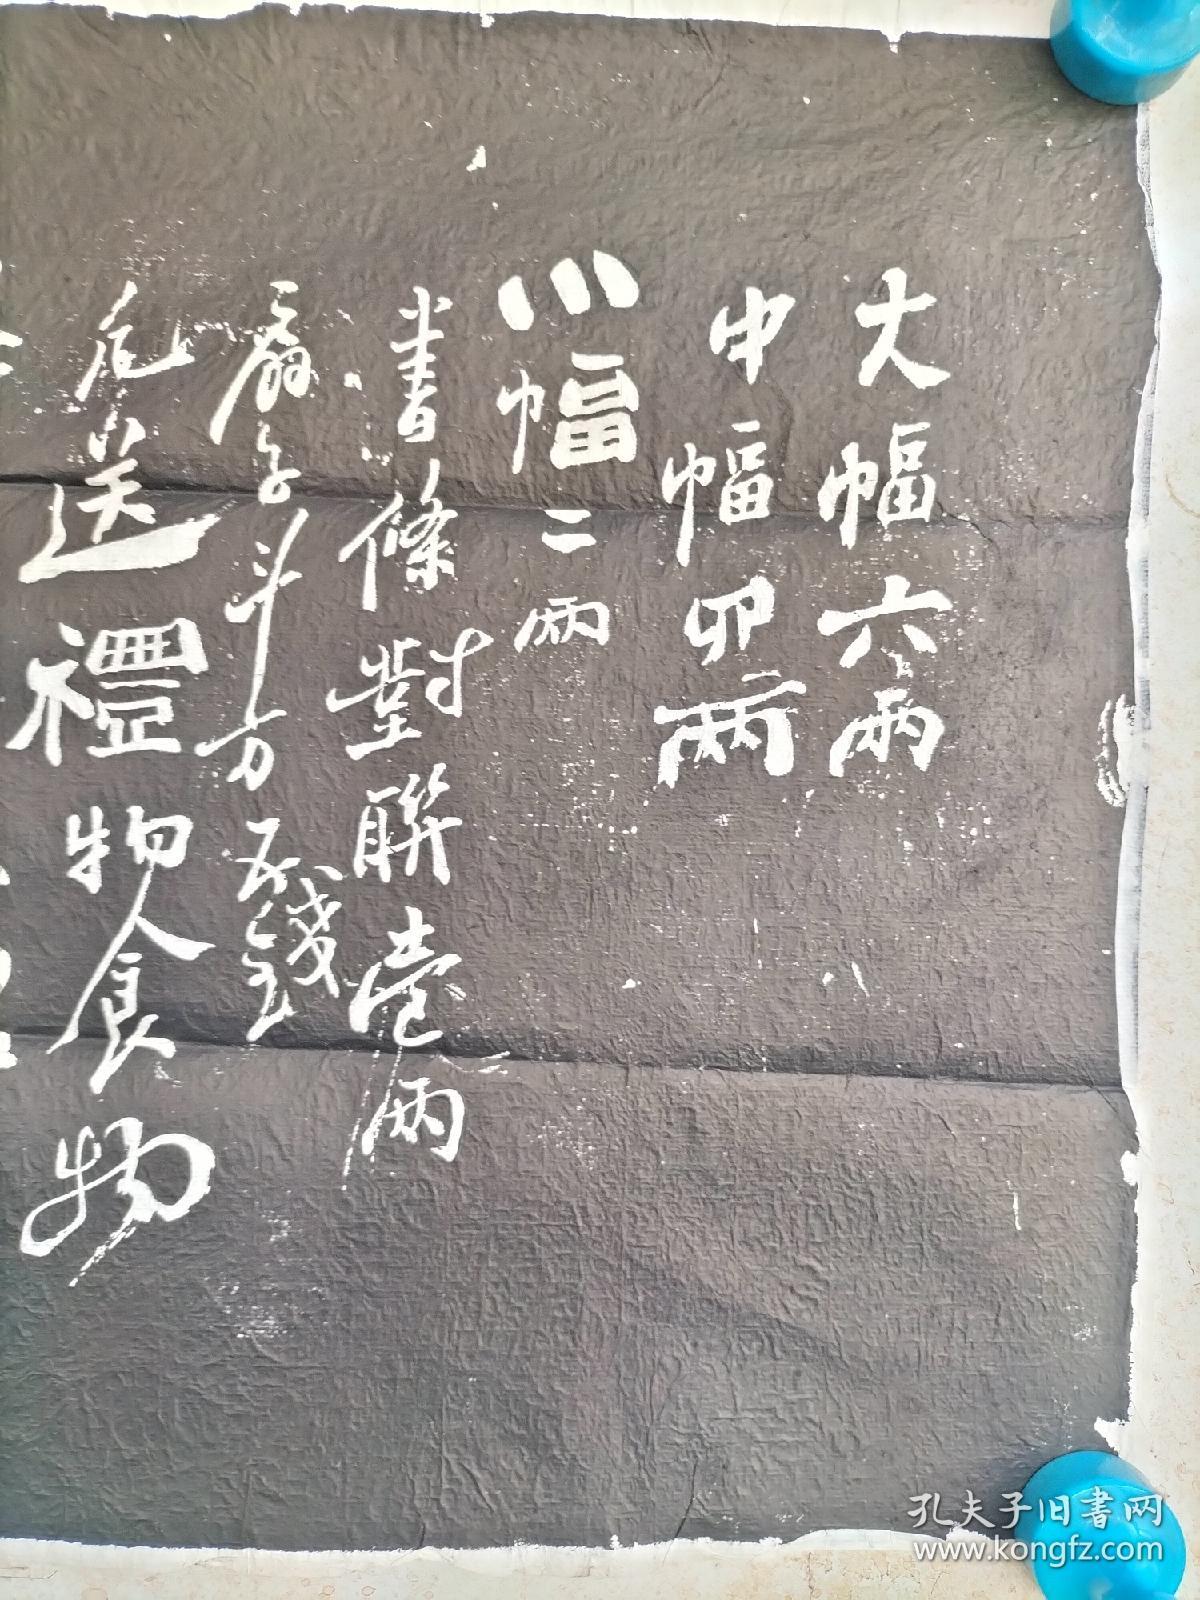 大幅六兩
中幅四兩
小幅二兩
書條對聯壹兩
扇子斗方五錢
凡送禮物食物
孔夫子旧书网
www.kongfz.com